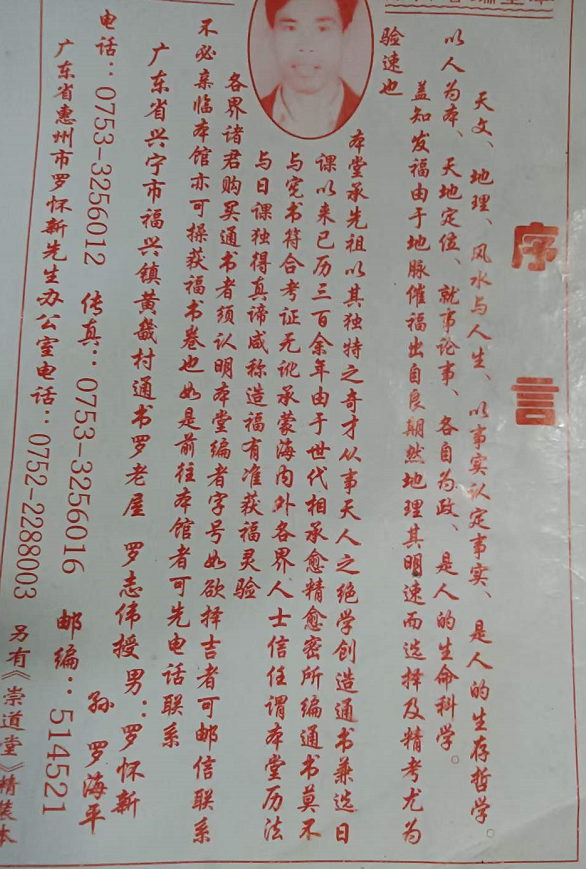 序言
天文、地理、风水与人生、以事实认定事实、是人的生存哲学。
以人为本、天地定位、就事论事、各自为政、是人的生命科学。
盖知发福由于地脉催福出自良期然地理其明速而选择及精考尤为
验速也
本堂承先祖以其独特之奇才从事天人之绝学创造通书兼选日
课以来已历三百余年由于世代相承愈精愈密所编通书莫不
与宪书符合考证无讹承蒙海内外各界人士信任谓本堂历法
与日课独得真谛咸称造福有准获福灵验
各界诸君购买通书者须认明本堂编者字号如欲择吉者可邮信联系
不必亲临本馆亦可操获福书卷也如是前往本馆者可先电话联系
广东省兴宁市福兴镇黄畿村通书罗老屋 罗志伟授男：罗怀新
孙 罗海平
电话：0753-3256012 传真：0753-3256016 邮编：514521
广东省惠州市罗怀新先生办公室电话：0752-2288003 另有《崇道堂》精装本